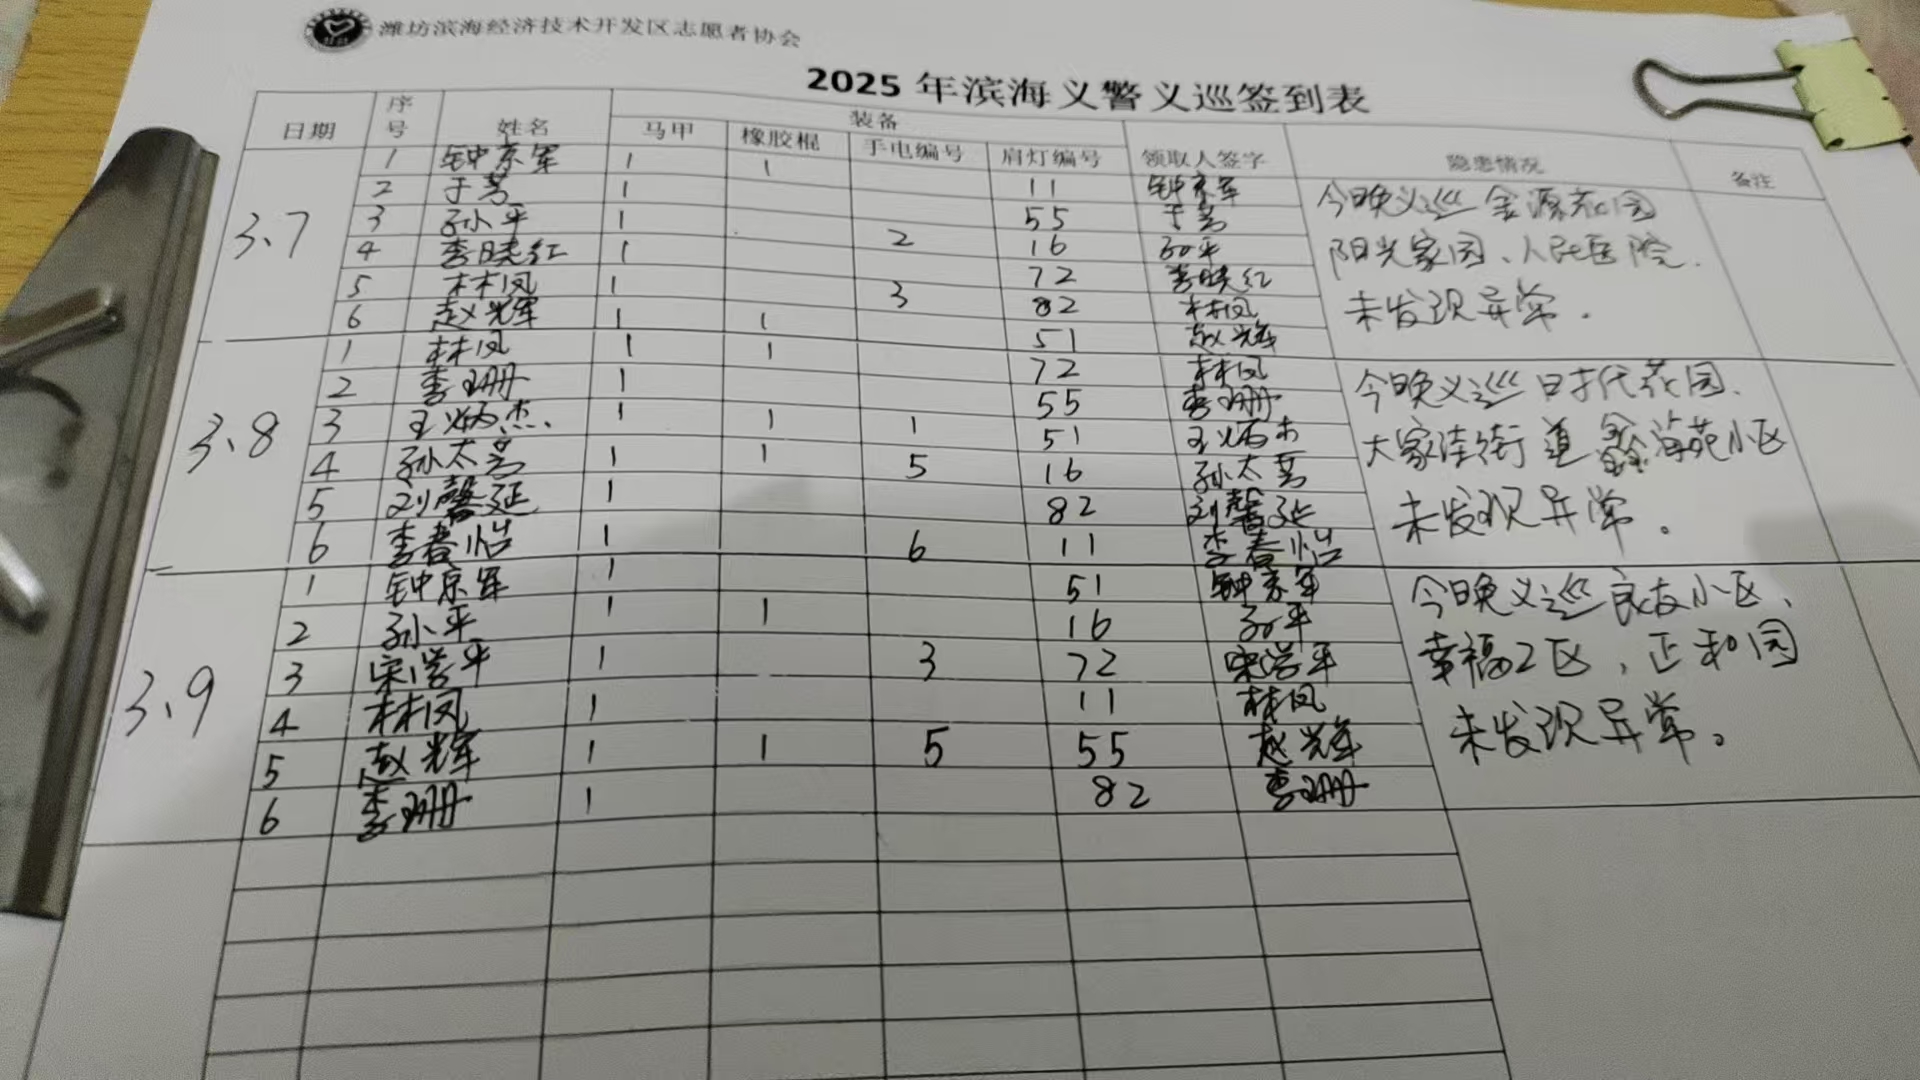 潍坊滨海经济技术开发区志愿者协会
2025年滨海义警义巡签到表
日期 序号 姓名 装备 领取人签字 隐患情况 备注
马甲 橡胶棍 手电编号 肩灯编号
3、7
1 钟京军 1 1 11 钟京军
2 于芳 1 55 于芳
3 孙平 1 2 16 孙平
4 李晓红 1 72 李晓红
5 林凤 1 3 82 林凤
6 赵光辉 1 1 51 赵光辉
今晚义巡金源花园
阳光家园、人民医院.
未发现异常.
3、8
1 林凤 1 1 72 林凤
2 李珊珊 1 55 李珊珊
3 王炳杰 1 1 1 51 王炳杰
4 孙太芳 1 1 5 16 孙太芳
5 刘馨延 1 82 刘馨延
6 李春怡 1 6 11 李春怡
今晚义巡时代花园.
大家洼街道鑫海苑小区
未发现异常。
3、9
1 钟京军 1 51 钟京军
2 孙平 1 1 16 孙平
3 宋学平 1 3 72 宋学平
4 林凤 1 11 林凤
5 赵光辉 1 1 5 55 赵光辉
6 李珊珊 1 82 李珊珊
今晚义巡良友小区、
幸福2区，正和园
未发现异常。